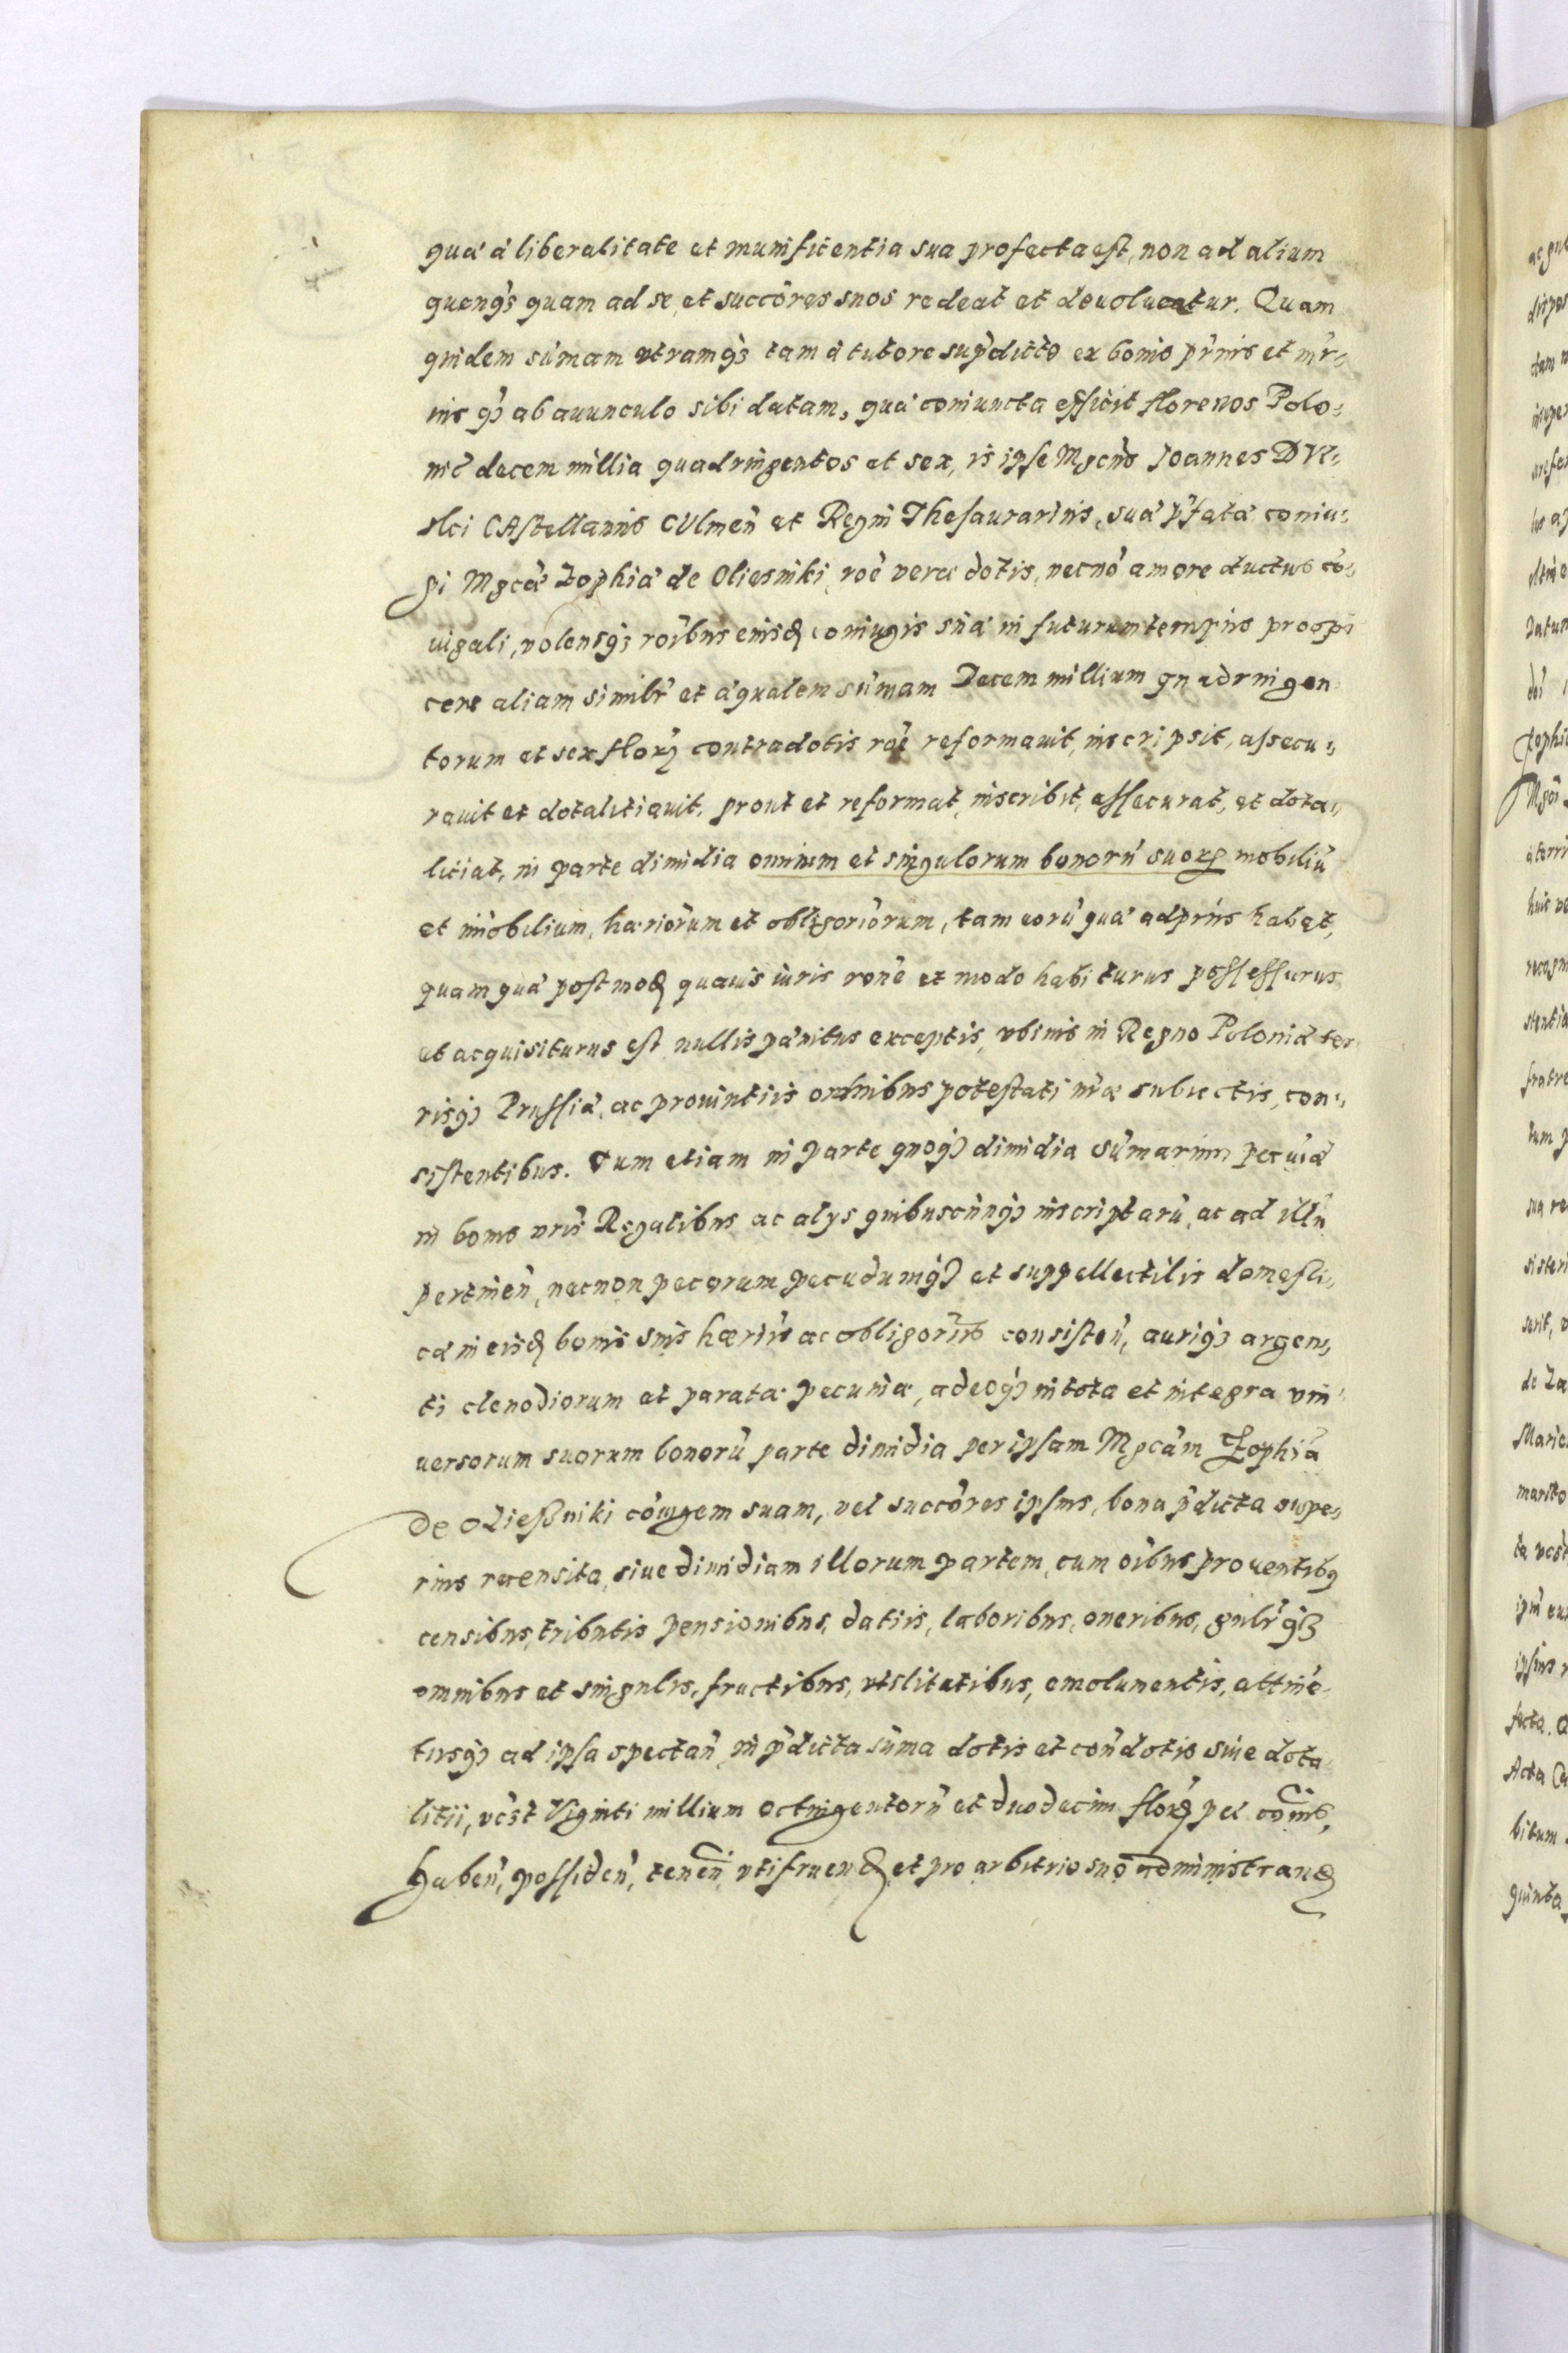 quæ à liberalitate et munificentia sua profecta est, non ad alium
quenq3 quam ad se, et succōres suos redeat et deuolueatur. Quam
quidem sūmam vtramq3 tam à tutore sup̃dicto ex bonis pr̃nis et mr̃-
nis q3 ab auunculo sibi datam, quæ coniuncta efficit florenos Polo-
nic̃ decem millia quadringentos et sex, is ipse Mgcūs Joannes DVl-
slci CAstellanus CVlmeñ et Regni Thesaurarius, suæ p̃fatæ coniu-
gi Mgcæ Zophiæ de Oliesniki, roē veræ dotis, necnō amore ductus cō-
iugali, volensq3 roībus eiusđ coniugis suæ in futurum tempus prospi
cere aliam similr̃ et æqualem sūmam Decem millium quadringen
torum et sex flor₂ contradotis roē reformauit, inscripsit, assecu-
rauit et dotalitiauit. prout et reformat, inscribit, assecurat, et dota-
litiat, in parte dimidia omnium et singulorum bonorū suor₂ mobiliū
et īmobilium, hæriōrum et obligoriōrum, tam eorū quæ adpr̃ns habet,
quam quæ postmođ quauis iuris ronē et modo habiturus possessurus
et acquisiturus est nullis pænitus exceptis, vbiuis in Regno Poloniæ ter
risq3 Prussiæ, ac prouintiis omnibus potestati nr̃æ subiectis, con-
sistentibus. Tum etiam in parte quoq3 dimidia sūmarum pecuīæ
in bonis nr̃is Regalibus ac alÿs quibuscūnq3 inscriptarū, ac ad illū
pertineñ, necnon pecorum pecudumq3 et suppellectilis domesti-
cæ in eisđ bonis suis hæriīs ac obligoriīs consisteñ, auriq3 argen-
ti clenodiorum et paratæ pecuniæ, adeoq3 in tota et integra vni-
uersorum suorum bonorū parte dimidia per ipsam Mgcām Zophiā
De Oließniki cōiugem suam, vel succōres ipsius, bona p̃dicta supe-
rius recensita, siue dimidiam illorum partem, cum oībus prouentib₉
censibus, tributis pensionibus, datiis, laboribus, oneribus, gnlr̃q3
omnibus et singulis, fructibus, vtilitatibus, emolumentis, attinē-
tiisq3 ad ipsa spectañ in p̃dicta sūma dotis et coñdotis siue dota-
litii, vc̃st Viginti millium octingentorū et duodecim flor₂ pel coīnis,
Habeñ, possideñ, teneñ vtifruenđ et pro arbitrio suo administranđ